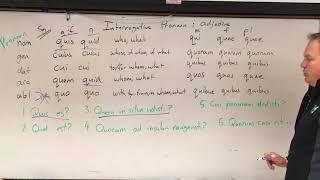 Interrogative Pronoun ; adjective
Pronoun Sg m/f n m f n
nom quis quid who, what qui quae quae
gen cuius cuius whose, of whom, of what quorum quarum quorum
dat cui cui to/for whom, what quibus quibus quibus
acc quem quid whom, what quos quas quae
abl quo quo quibus quibus quibus
1. Quis es? 3. Quem in silva vidisti? 5. Cui pecuniam dedisti?
2. Quid est? 4. Quocum ad insulam navigavisti? 6.